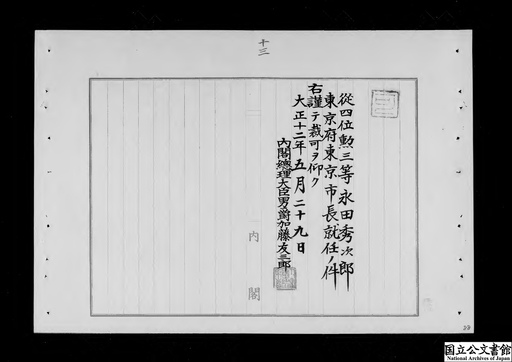 十三
從四位勲三等永田秀次郎
東京府東京市長就任ノ件
右謹テ裁可ヲ仰ク
大正十二年五月二十九日
内閣總理大臣男爵加藤友三郎
内閣
国立公文書館
National Archives of Japan